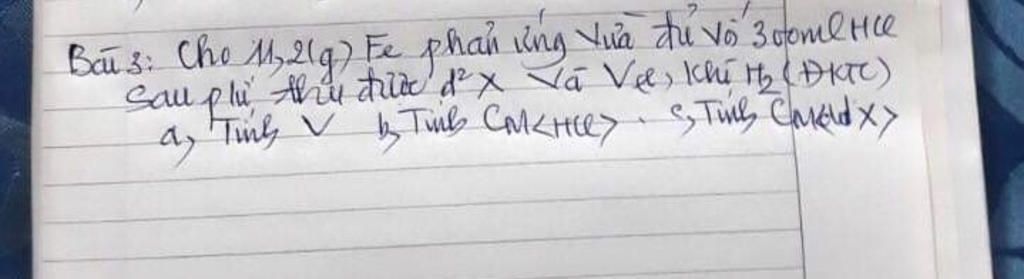 Bài 3: Cho 11,2(g) Fe phản ứng vừa đủ vớ 300ml HCl
sau pư thu được d² X và V(l) khí H₂ (ĐKTC)
a, Tính V b, Tính CM<HCl> . c, Tính CM<dd X>